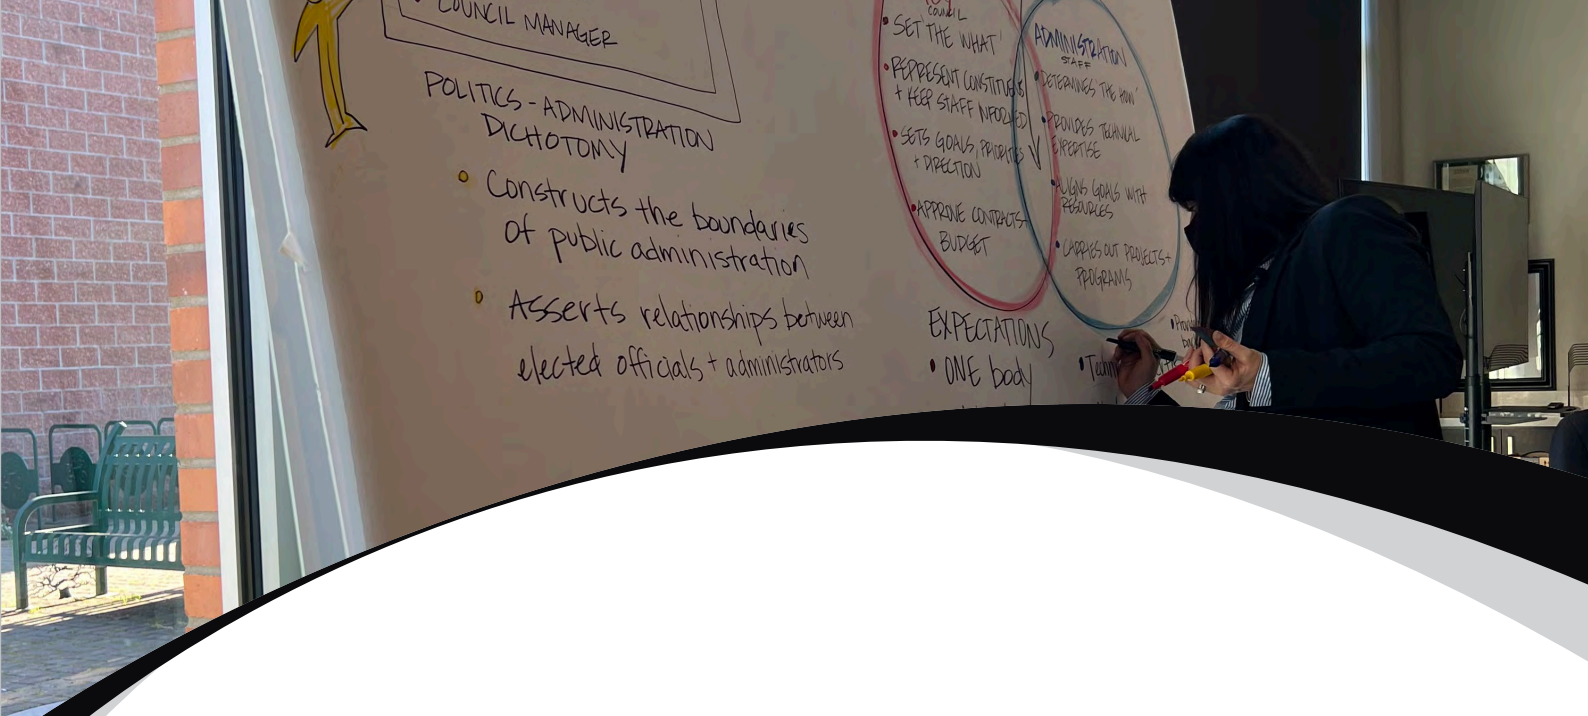 COUNCIL MANAGER
POLITICS - ADMINISTRATION
DICHOTOMY
Constructs the boundaries
of public administration
Asserts relationships between
elected officials + administrators
COUNCIL
• SET 'THE WHAT'
• REPRESENT CONSTITUENTS
+ KEEP STAFF INFORMED
• SETS GOALS, PRIORITIES
+ DIRECTION
• APPROVE CONTRACTS +
BUDGET
ADMINISTRATION
STAFF
• DETERMINES 'THE HOW'
• PROVIDES TECHNICAL
EXPERTISE
• ALIGNS GOALS WITH
RESOURCES
• CARRIES OUT PROJECTS +
PROGRAMS
EXPECTATIONS
• ONE body